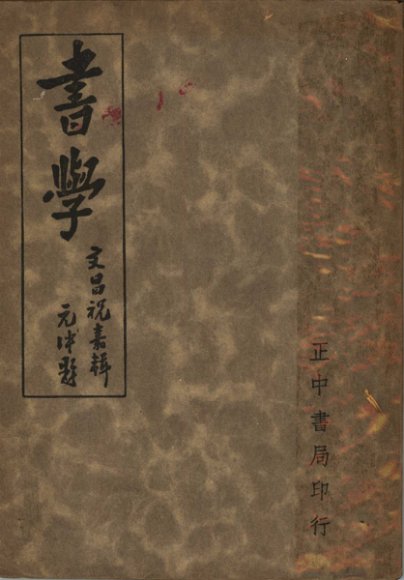 書學
文昌祝嘉輯
元沖署
正中書局印行